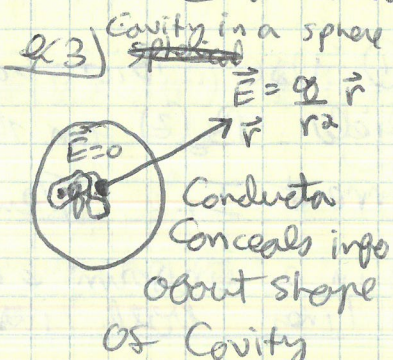 ex3) Cavity in a sphere
E⃗ = q/r² r⃗
r⃗
E⃗=0
Conductor
Conceals info
about shape
of Cavity